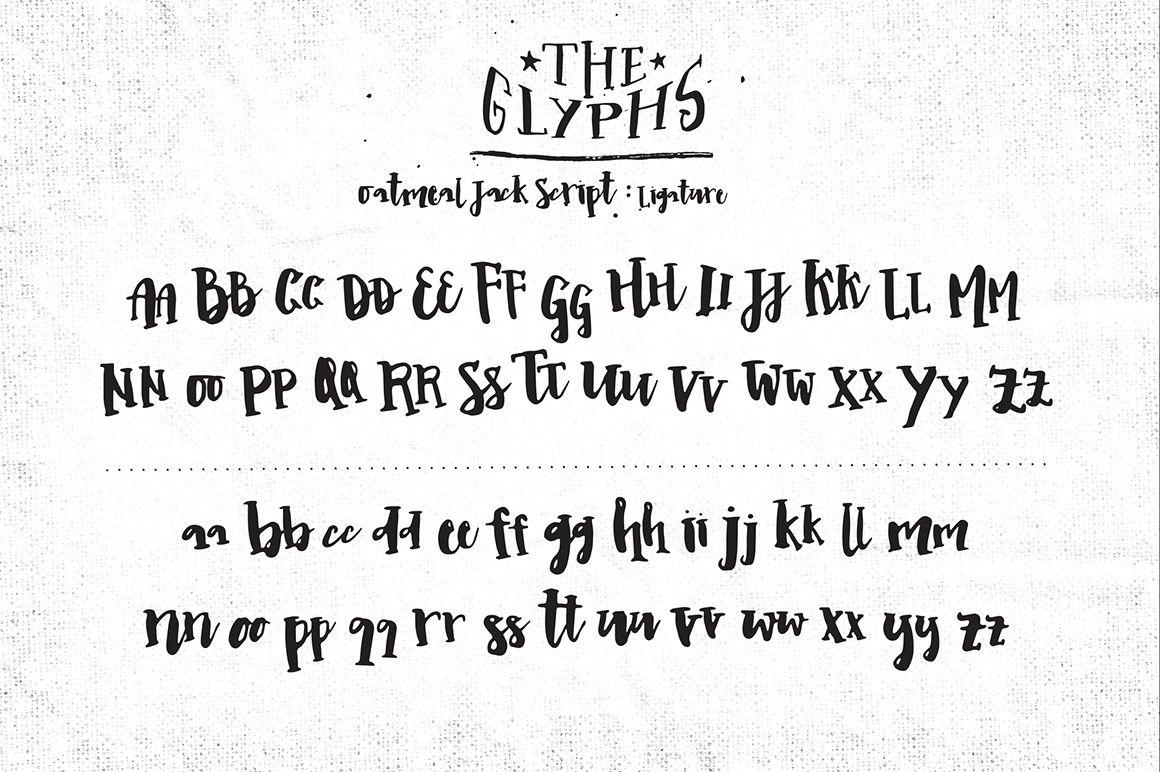 THE
GLYPHS
Oatmeal Jack Script : Ligature
AA BB CC DD EE FF GG HH II JJ KK LL MM
NN OO PP QQ RR SS TT UU VV WW XX YY ZZ
aa bb cc dd ee ff gg hh ii jj kk ll mm
nn oo pp qq rr ss tt uu vv ww xx yy zz